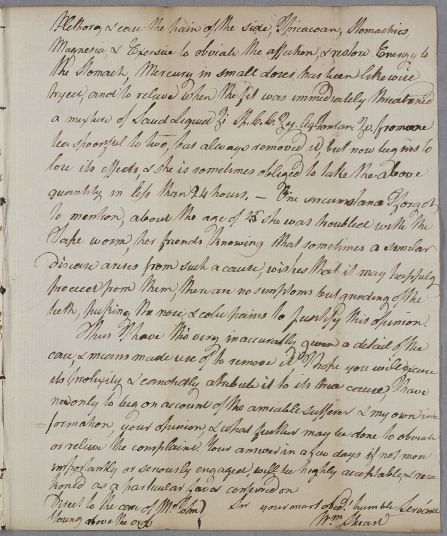 Plethora, & ease the pain of the side, Ipicacoan, Stomachics,
Magnesia, & Exercise to obviate the affection, & restore Energy to
the Stomach, Mercury in small doses has been likewise
tryed, and to relieve when the fit was immediately threatened
a mixture of Laud Liquid from one
tea spoonful to two, has always removed it, but now begins to
lose its effects, & she is sometimes obliged to take the above
quantity in less than 24 hours. — One circumstance I forgot
to mention, about the age of 25 she was troubled with the
Tape worm, her friends knowing that sometimes a similar
disease arises from such a cause, wishes that it may happily
proceed from them, there are no symptoms but grinding of the
teeth, picking the nose, & colic pains to justify this opinion.
Thus I have tho very inaccurately given a detail of the
case, & means made use of to remove it. I hope you will excuse
its prolixity & candidly attribute it to its true cause, I have
now only to beg on account of the amiable sufferer & my own in
formation, your opinion, & what further may be done to obviate
or relieve the complaint. Your answer in a few days if not more
importantly or seriously engaged, will be highly acceptable, & rec
koned as a particular favor conferred on
Direct to the care of Mr. John
Young above the
Sir your most obedt. humble Servant
Wm. Stuart